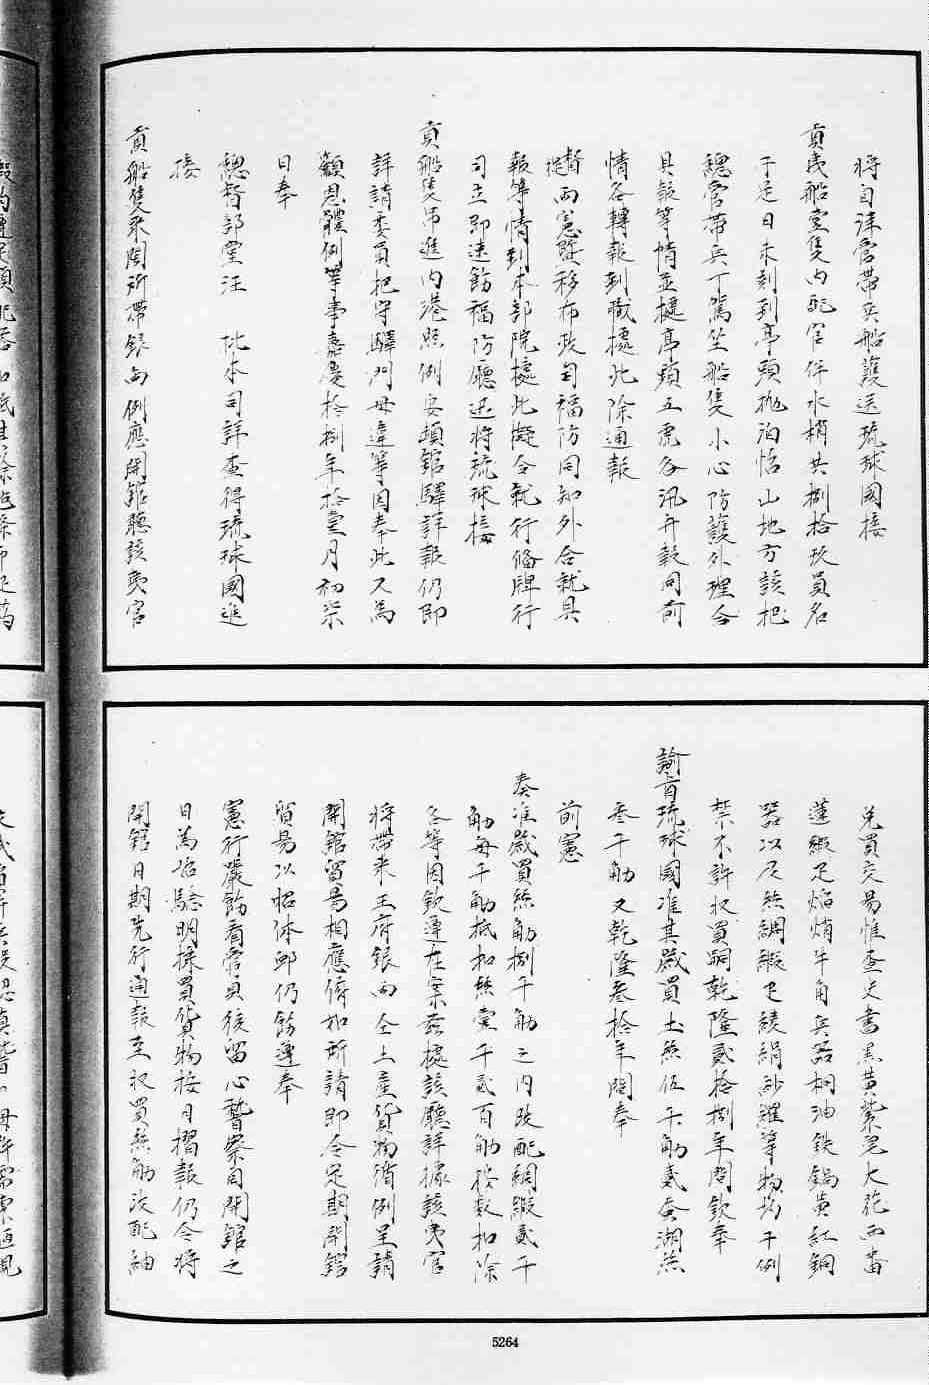 將自洋官帶兵船護送琉球國接
貢夷船壹隻內配官伴水梢共捌拾玖員名
于是日未刻到亭頭拋泊怡山地方該把
總官帶兵丁駕坐船隻小心防護外理合
具報等情並據亭頭五虎各汛弁報同前
情各轉報到職據此除通報
督兩憲暨移布政司福防同知外合就具
報等情到本部院據此擬合就行備牌行
司立即速飭福防廳迅將琉球接
貢船隻吊進內港照例安頓館驛詳報仍即
詳請委員把守驛門毋違等因奉此又為
籲恩體例等事嘉慶拾捌年拾壹月初柒
日奉
總督部堂汪 批本司詳查得琉球國進
接
貢船隻來閩所帶銀兩例應開館聽該夷官
兌買交易惟查史書黑黃紫皂大花西番
蓮緞疋焰硝牛角兵器桐油鐵鍋黃紅銅
器以及絲綢緞疋綾絹紗羅等物均干例
禁不許收買嗣乾隆貳拾捌年間欽奉
諭旨琉球國准其歲買土絲伍千觔貳蠶湖絲
叁千觔又乾隆叁拾年間奉
前憲
奏准歲買絲觔捌千觔之內改配綢緞貳千
觔每千觔抵扣絲壹千貳百觔按數扣除
各等因欽遵在案茲據該廳詳據該夷官
將帶來王府銀兩仝土產貨物循例呈請
開館貿易相應俯如所請即令定期開館
貿易以昭体邮仍飭遵奉
憲行嚴飭看守員役留心稽察自開館之
日為始驗明採買貨物按月摺報仍令將
開館日期先行通報至收買絲觔改配紬
5264